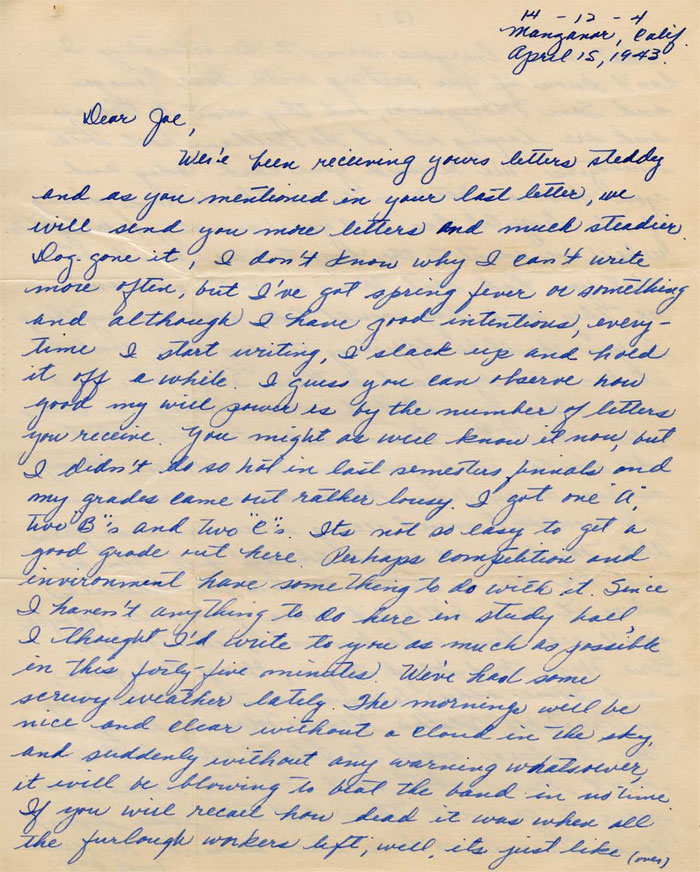 14 - 12 - 4
Manzanar, Calif.
April 15, 1943.
Dear Joe,
We've been receiving yours letters steddy
and as you mentioned in your last letter, we
will send you more letters and much steadier.
Dog-gone it, I don't know why I can't write
more often, but I've got spring fever or something
and although I have good intentions, every-
time I start writing, I slack up and hold
it off a while. I guess you can observe how
good my will power is by the number of letters
you receive. You might as well know it now, but
I didn't do so hot in last semesters finals and
my grades came out rather lousy. I got one "A",
two "B"s and two "C"s. Its not so easy to get a
good grade out here. Perhaps competition and
invironment have something to do with it. Since
I haven't anything to do here in study hall,
I thought I'd write to you as much as possible
in this forty-five minutes. We've had some
screwy weather lately. The mornings will be
nice and clear without a cloud in the sky,
and suddenly without any warning whatsoever,
it will be blowing to beat the band in no time.
If you will recall how dead it was when all
the furlough workers left, well, its just like (over)